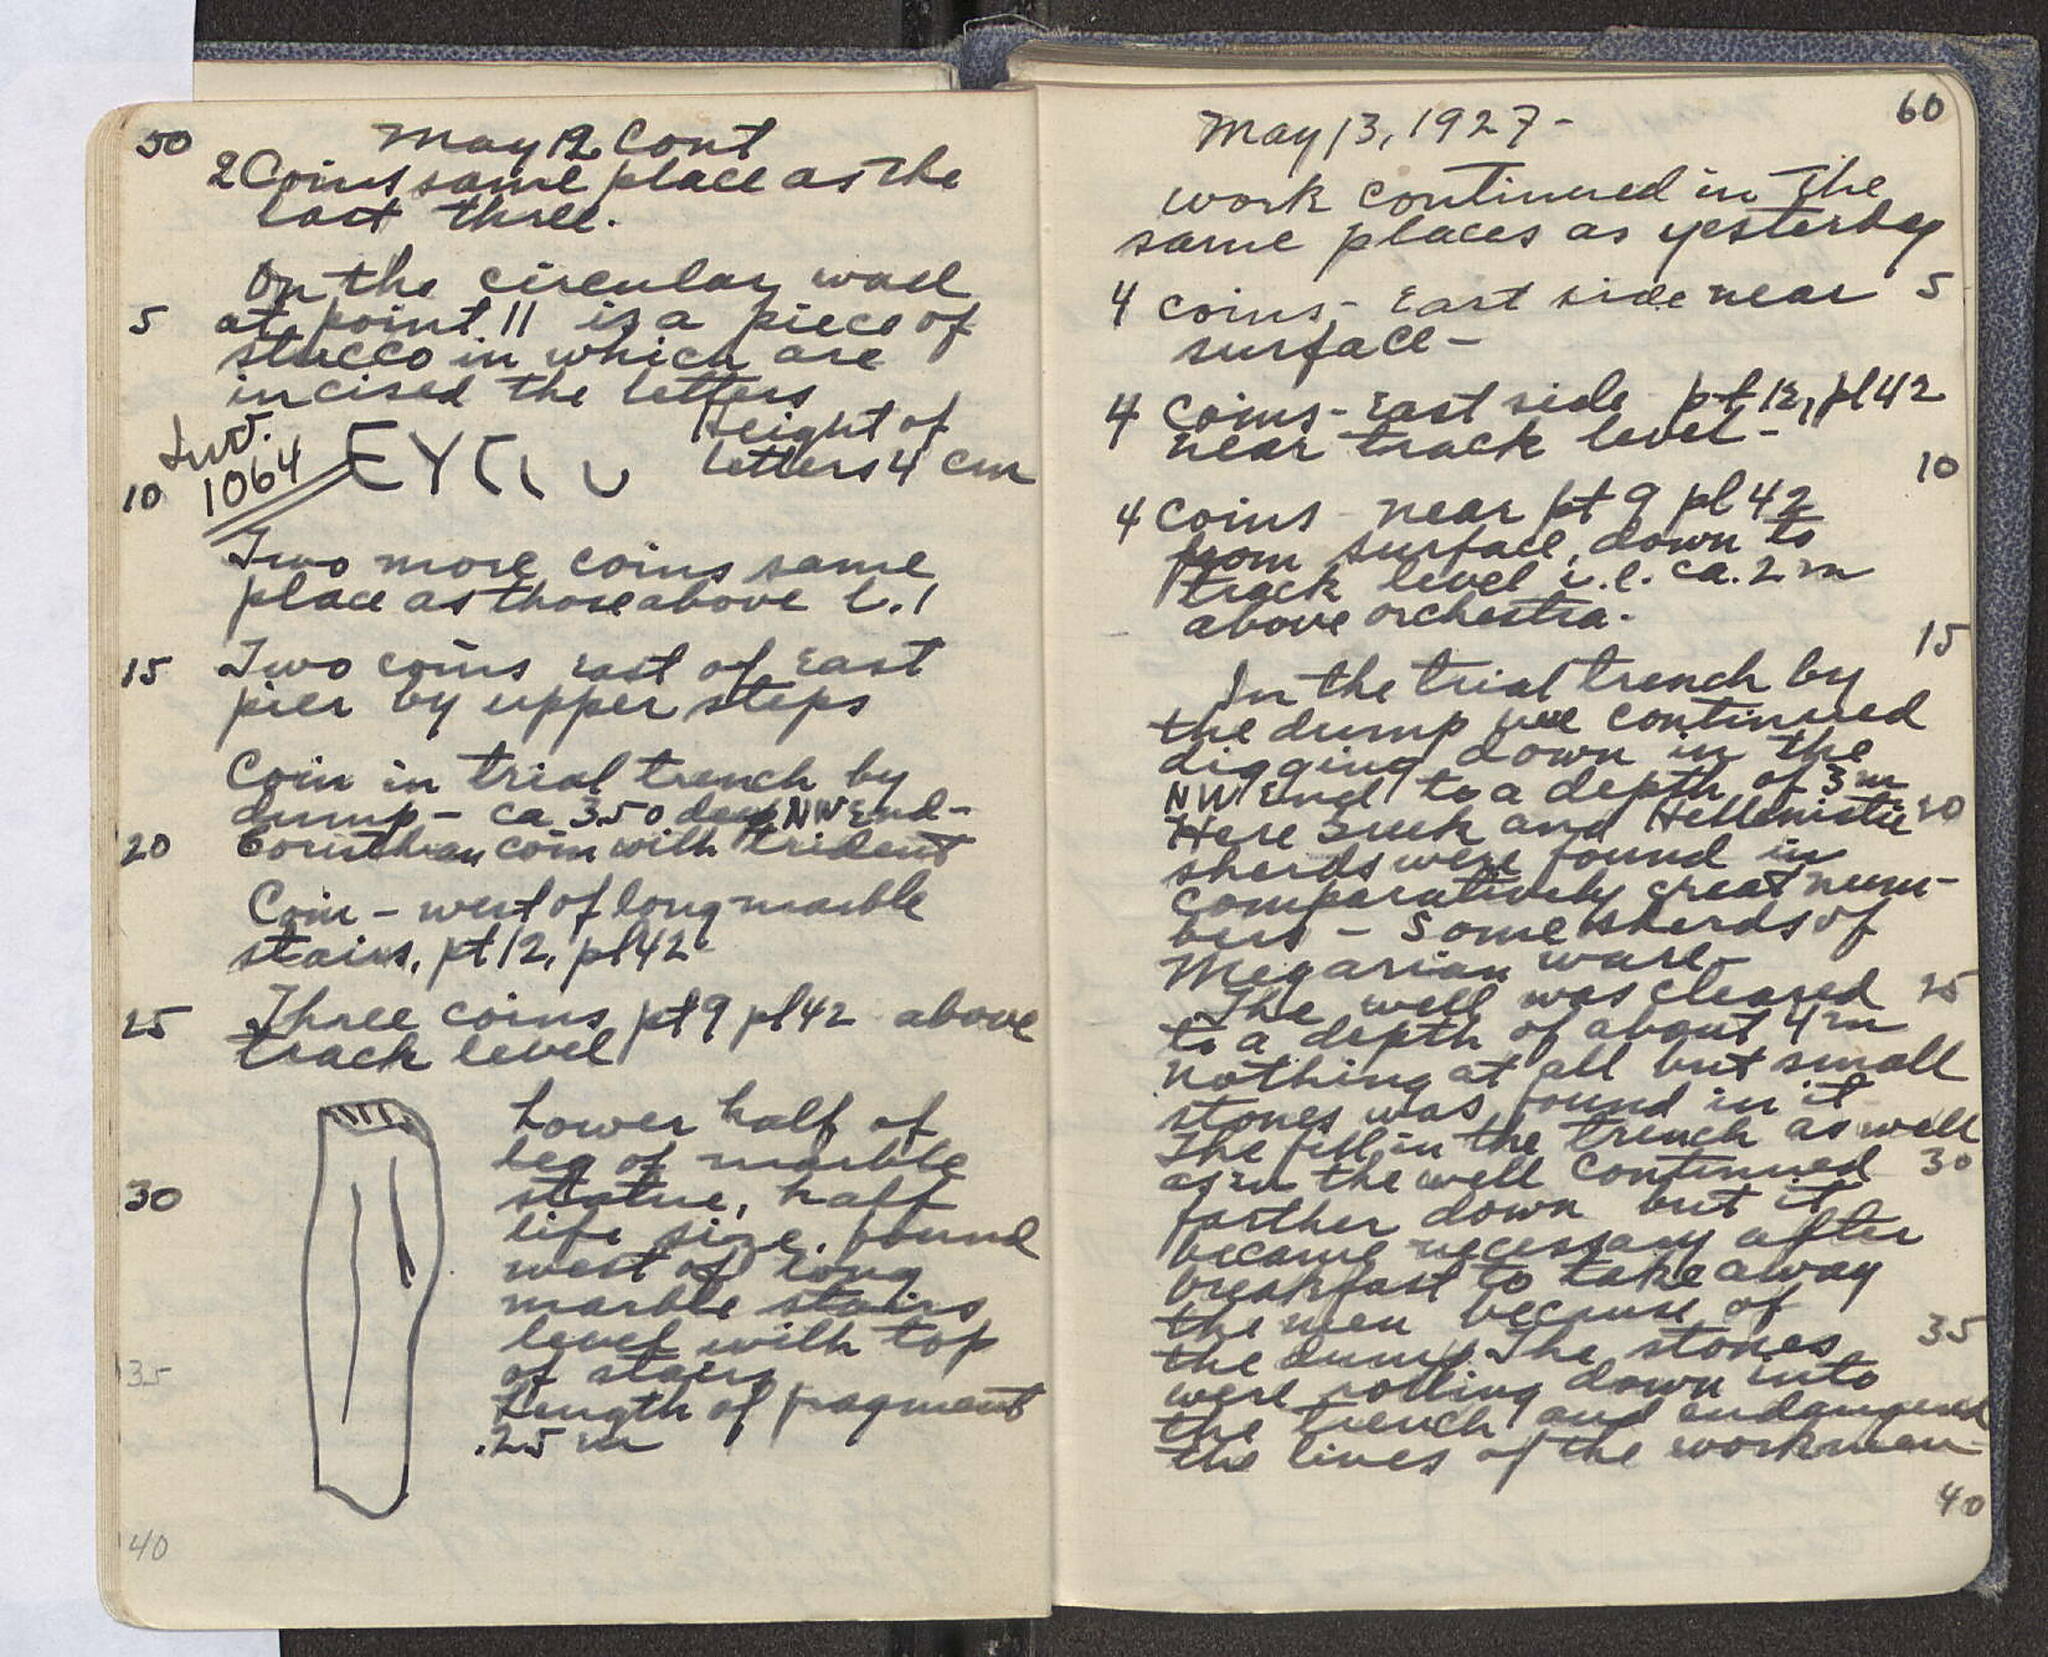 50 May 12 Cont
2 Coins same place as the
last three.
On the circular wall
5 at point 11 is a piece of
stucco in which are
incised the letters
Inv. 1064
Height of
letters 4 cm
10
Two more coins same
place as those above l. 1
15 Two coins east of East
pier by upper steps
Coin in trial trench by
dump - ca 3.50 deep NW End -
20 Corinthian coin with trident
Coin - west of long marble
stairs, pt 12, pl 42
25 Three coins pt 9 pl 42 above
track level
Lower half of
leg of marble
30 statue, half
life size. found
west of long
marble stairs
level with top
35 of stairs
Length of fragment
.25 m
40
60
May 13, 1927 -
work continued in the
same places as yesterday
4 coins - East side near 5
surface -
4 Coins - East side pt 12, pl 42
near track level -
10
4 Coins near pt 9 pl 42
from surface, down to
track level i.e. ca. 2 m
above orchestra.
15
In the trial trench by
the dump we continued
digging down in the
NW End to a depth of 3 m
Here Greek and Hellenistic 20
sherds were found in
comparatively great num-
bers - Some sherds of
Megarian ware -
The well was cleared 25
to a depth of about 4 m
Nothing at all but small
stones was found in it
The fill in the trench as well
as in the well continued 30
farther down but it
became necessary after
breakfast to take away
the men because of
the dump. The stones 35
were rolling down into
the trench and endangered
the lives of the workmen -
40